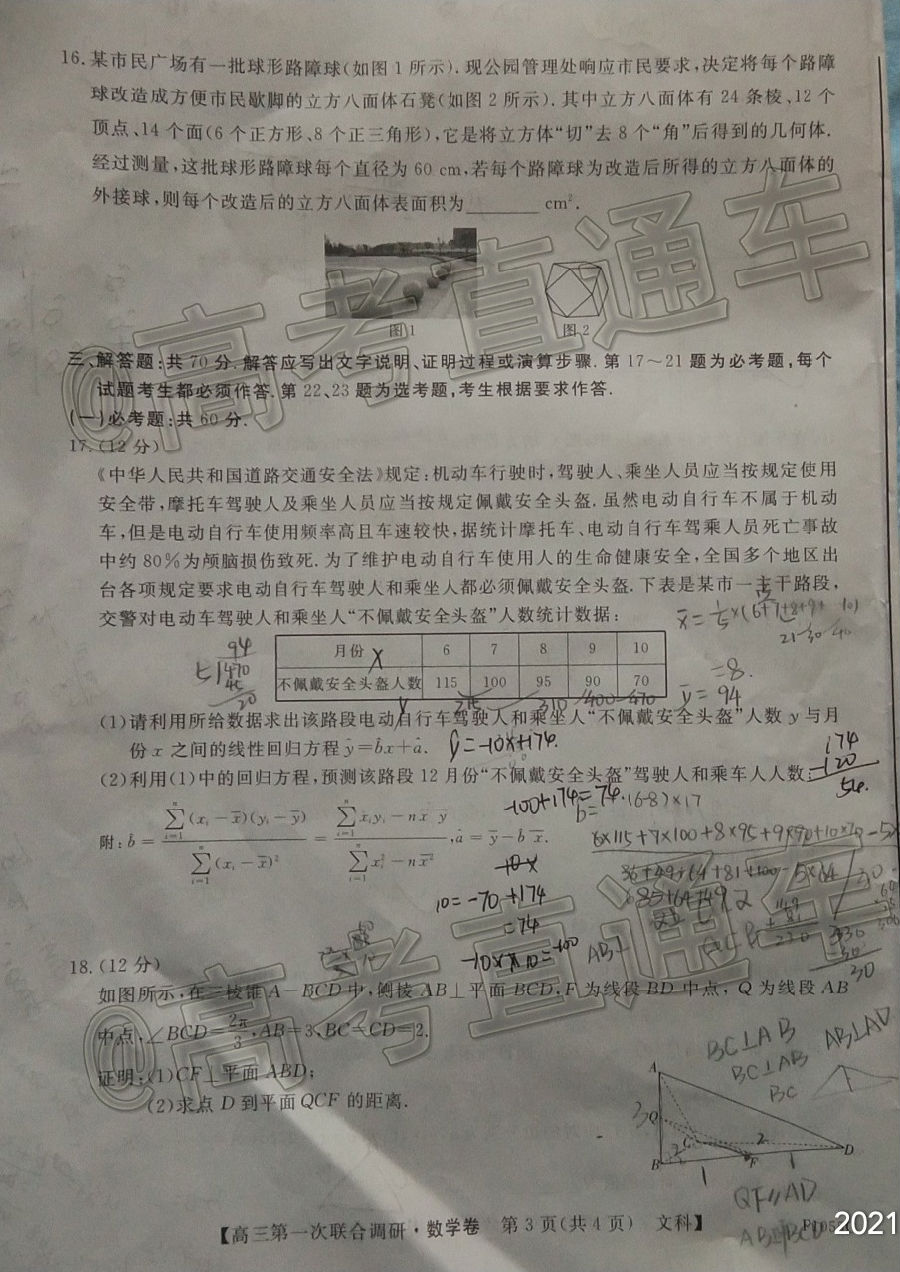 16.某市民广场有一批球形路障球(如图1所示).现公园管理处响应市民要求,决定将每个路障
球改造成方便市民歇脚的立方八面体石凳(如图2所示).其中立方八面体有24条棱、12个
顶点、14个面(6个正方形、8个正三角形),它是将立方体“切”去8个“角”后得到的几何体.
经过测量,这批球形路障球每个直径为60 cm,若每个路障球为改造后所得的立方八面体的
外接球,则每个改造后的立方八面体表面积为________ cm².
图1 图2
三、解答题:共70分.解答应写出文字说明、证明过程或演算步骤.第17~21题为必考题,每个
试题考生都必须作答.第22、23题为选考题,考生根据要求作答.
(一)必考题:共60分.
17.(12分)
《中华人民共和国道路交通安全法》规定:机动车行驶时,驾驶人、乘坐人员应当按规定使用
安全带,摩托车驾驶人及乘坐人员应当按规定佩戴安全头盔.虽然电动自行车不属于机动
车,但是电动自行车使用频率高且车速较快,据统计摩托车、电动自行车驾乘人员死亡事故
中约80%为颅脑损伤致死.为了维护电动自行车使用人的生命健康安全,全国多个地区出
台各项规定要求电动自行车驾驶人和乘坐人都必须佩戴安全头盔.下表是某市一主干路段,
交警对电动车驾驶人和乘坐人“不佩戴安全头盔”人数统计数据:
x̄=1/5×(6+7+8+9+10)
21 30 40
=8.
ȳ=94
94
5√470
45
20
月份 x 6 7 8 9 10
不佩戴安全头盔人数 y 115 100 95 90 70
215 310 400 470
(1)请利用所给数据求出该路段电动自行车驾驶人和乘坐人“不佩戴安全头盔”人数y与月
份x之间的线性回归方程ŷ=b̂x+â. ŷ=-10x+174.
(2)利用(1)中的回归方程,预测该路段12月份“不佩戴安全头盔”驾驶人和乘车人人数.
174
-120
54.
-100+174=74
附:b̂=∑(xᵢ-x̄)(yᵢ-ȳ)/∑(xᵢ-x̄)²=∑xᵢyᵢ-nx̄ ȳ/∑xᵢ²-nx̄²,â=ȳ-b̂x̄.
6×115+7×100+8×95+9×90+10×70-5×
36+49+64+81+100-5×64
-10x
10=-70+174
=74
-10×10=-100
AB⊥
18.(12分)
如图所示,在三棱锥A-BCD中,侧棱AB⊥平面BCD,F为线段BD中点,Q为线段AB
中点,∠BCD=2π/3,AB=3,BC=CD=2.
证明:(1)CF⊥平面ABD;
(2)求点D到平面QCF的距离.
BC⊥AB AB⊥AD
BC⊥AB
BC
A
Q
3
C
B
F
D
2
2
1
1
QF∥AD
【高三第一次联合调研·数学卷 第3页(共4页) 文科】
2021
@高考直通车
@高考直通车